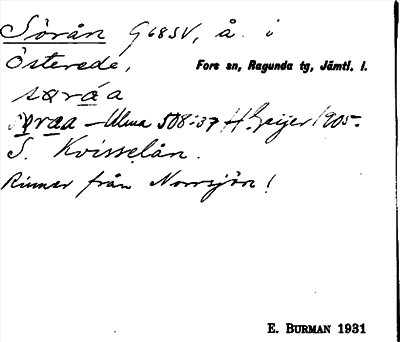 Sörån G68SV, å. i
Österede, Fors sn, Ragunda tg, Jämtl. l.
søráa
søraa – Ulma 508:37 H. Geijer 1905.
S. Kvisselån.
Rinner från Norrsjön!
E. BURMAN 1931